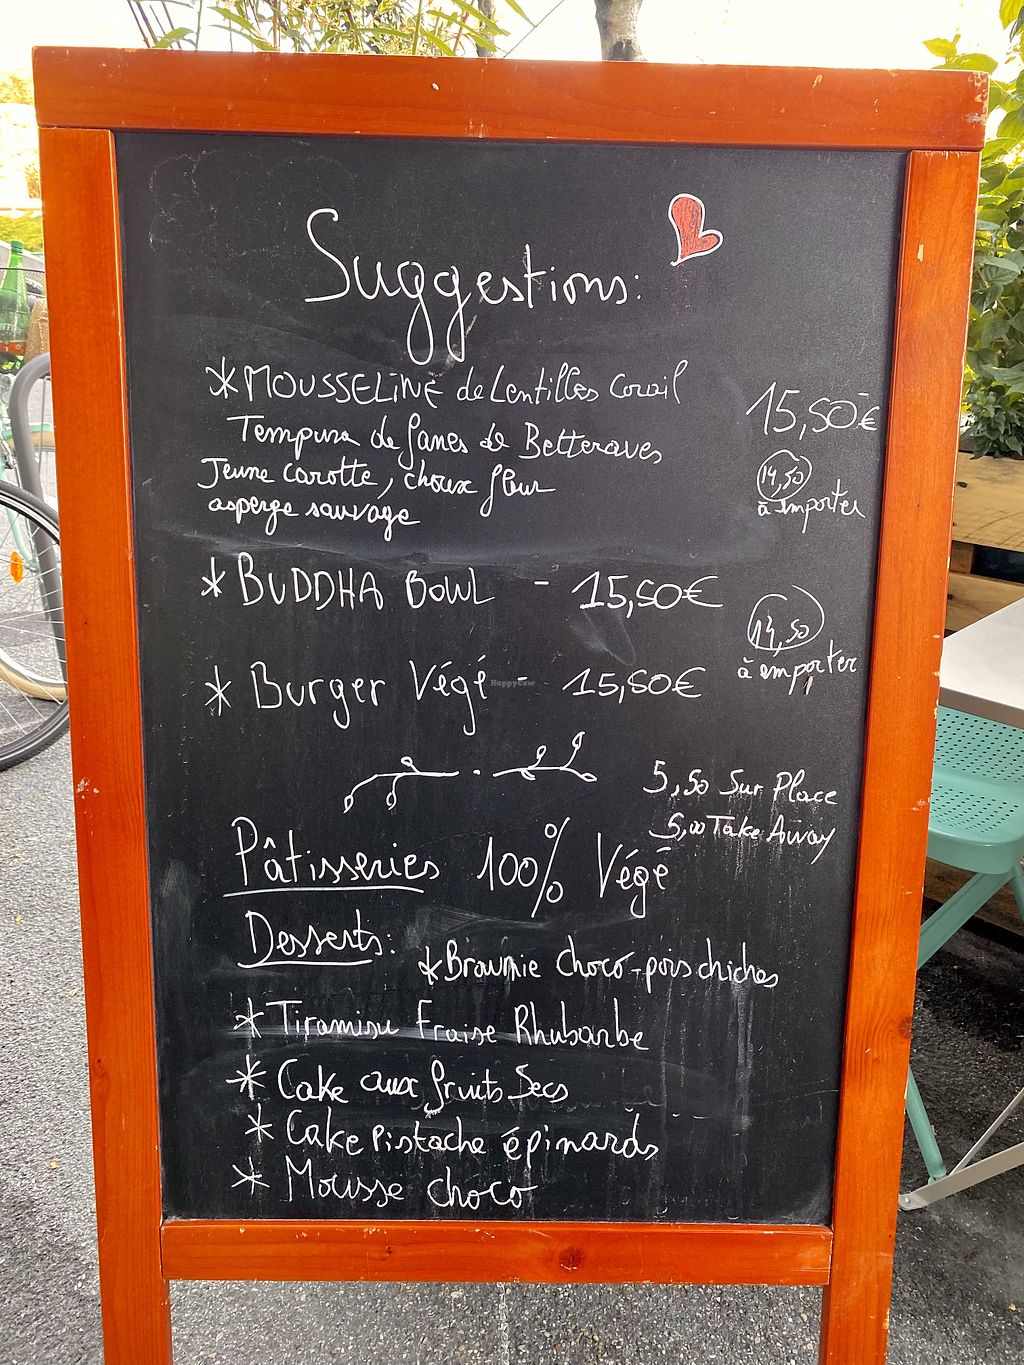 Suggestions:
* MOUSSELINE de Lentilles Corail
15,50€
Tempura de fanes de Betteraves
Jeune carotte, choux fleur
14,50
à emporter
asperge sauvage
* BUDDHA BOWL - 15,50€
14,50
à emporter
* Burger Végé - 15,50€
HappyCow
5,50 Sur Place
5,00 Take Away
Pâtisseries 100% Végé
Desserts:
* Brownie choco-pois chiches
* Tiramisu Fraise Rhubarbe
* Cake aux fruits Secs
* Cake Pistache épinards
* Mousse choco